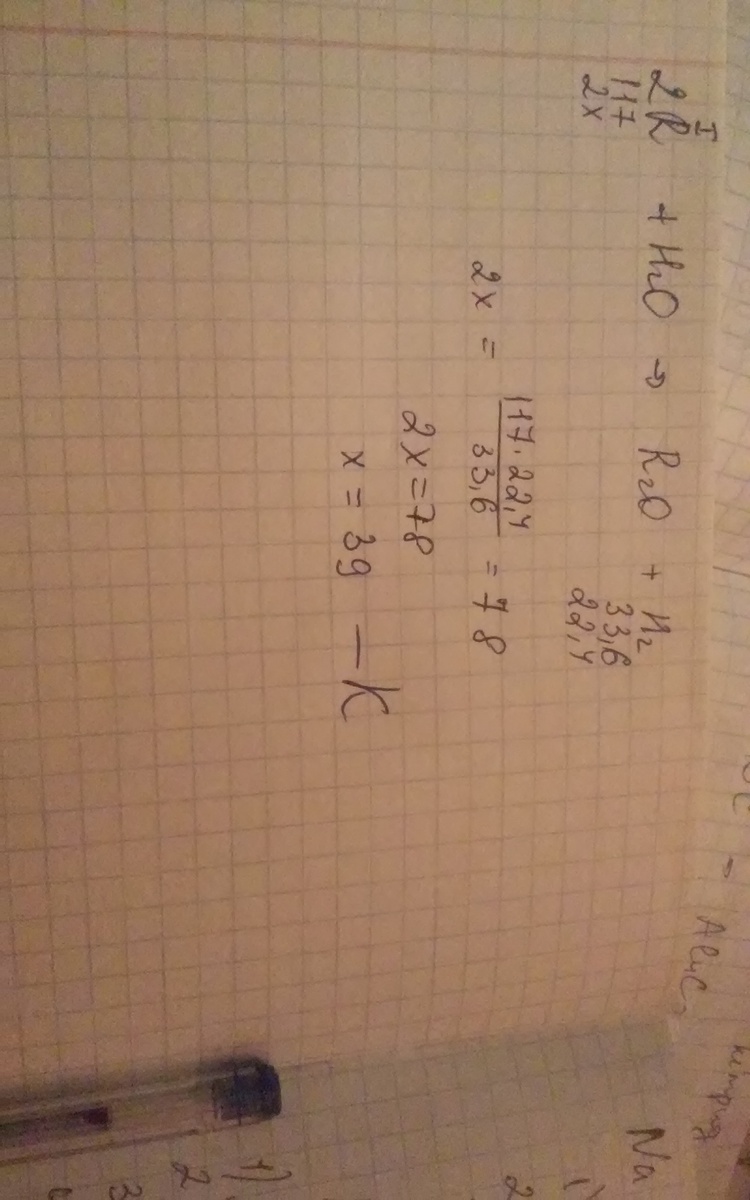 I
2R + H₂O → R₂O + H₂
117 33,6
2x 22,4
2x = 117·22,4 / 33,6 = 78
2x = 78
x = 39 — K
→ Al₄C₃
Na
1)
2
1)
2
3